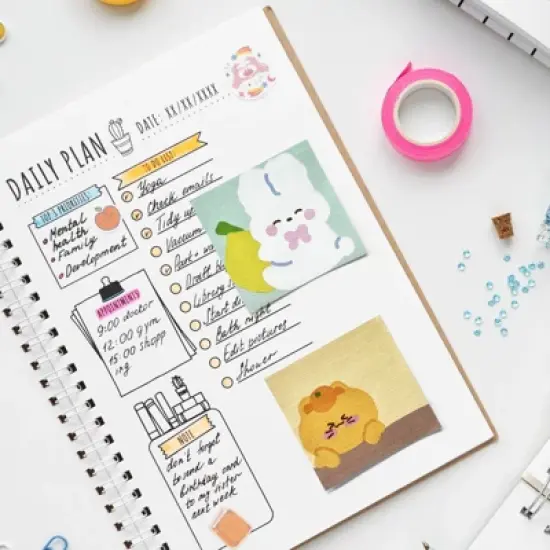 DAILY PLAN
DATE: XX/XX/XXXX
TOP 3 PRIORITIES:
• Mental
health
• Family
• Development
TO DO LIST:
Yoga
Check emails
Tidy up
Vacuum
Draft
Library
Start
Bath night
Edit pictures
Shower
APPOINTMENTS
9:00 doctor
12:00 gym
15:00 shopp
ing
NOTE
don't forget
to send a
birthday card
to my sister
next week